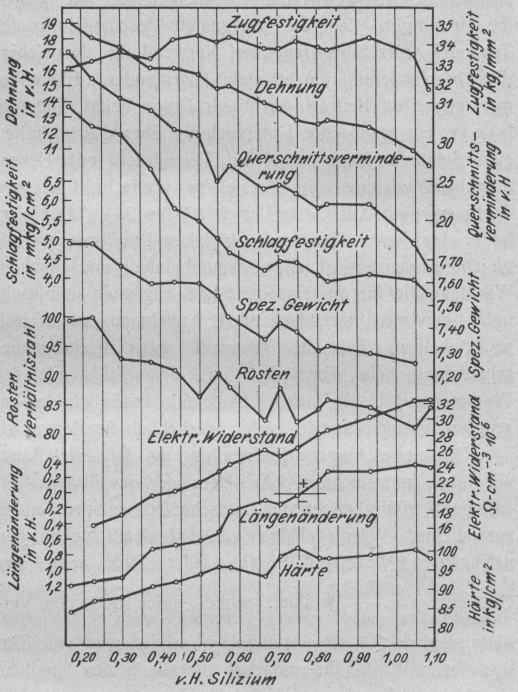 Dehnung
in v.H.
Schlagfestigkeit
in mkg/cm²
Rosten
Verhältniszahl
Längenänderung
in v.H.
19
18
17
16
15
14
13
12
11
6,5
6,0
5,5
5,0
4,5
4,0
100
95
90
85
80
0,4
0,2
0,0
0,2
0,4
0,6
0,8
1,0
1,2
Zugfestigkeit
Dehnung
Querschnittsverminde-
rung
Schlagfestigkeit
Spez. Gewicht
Rosten
Elektr. Widerstand
+
Längenänderung
Härte
35
34
33
32
31
30
25
20
7,70
7,60
7,50
7,40
7,30
7,20
32
30
28
26
24
22
20
18
16
100
95
90
85
80
Zugfestigkeit
in kg/mm²
Querschnitts-
verminderung
in v.H
Spez. Gewicht
Elektr. Widerstand
Ω·cm⁻³ 10⁶
Härte
in kg/cm²
0,20 0,30 0,40 0,50 0,60 0,70 0,80 0,90 1,00 1,10
v.H. Silizium